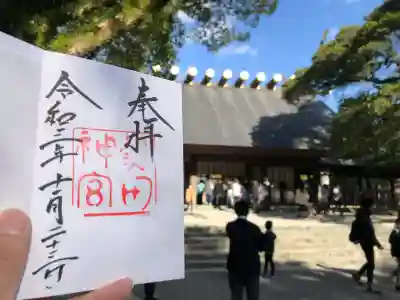 奉拝
熱田
神宮
令和二年十一月二十三日